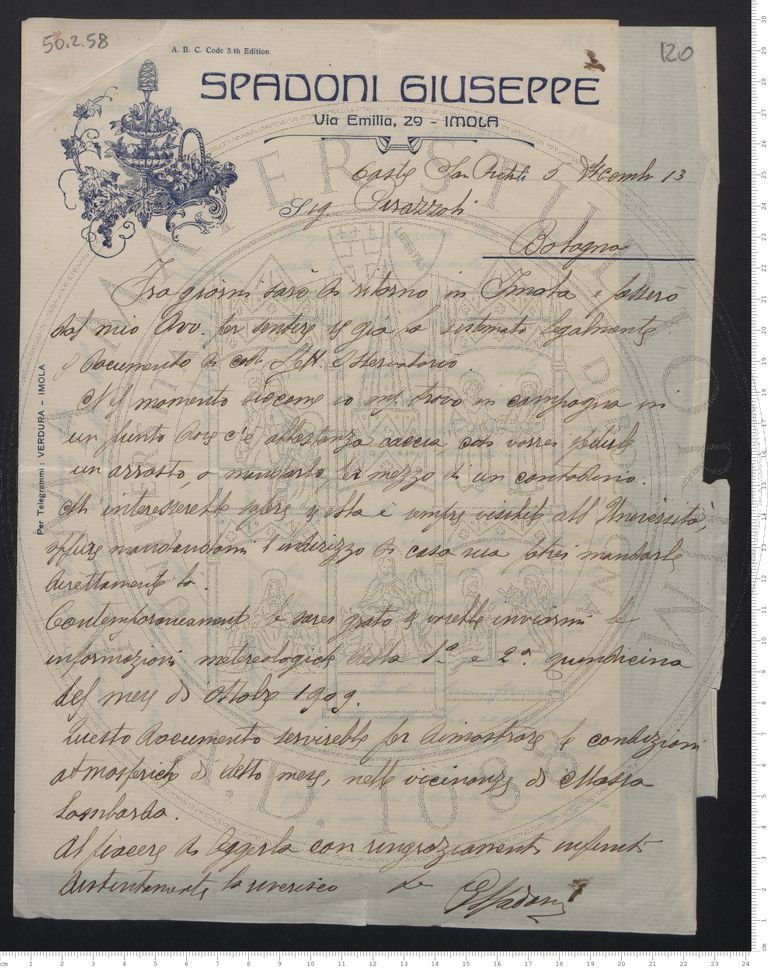 50.2.58
120
A. B. C. Code 5.th Edition
SPADONI GIUSEPPE
Via Emilia, 29 - IMOLA
Castel San 5 Dicembre 13
Sig
Bologna
Fra giorni sarò di ritorno in Imola e passerò
dal mio Avv. per sentire se già ha sistemato legalmente
il documento di cod. Osservatorio.
Nel momento siccome io mi trovo in campagna in
un punto dove c'è abbastanza caccia, così vorrei
un arrosto, o mandarlo per mezzo di un contadino.
Mi interesserebbe sapere se Ella è sempre all'Università,
oppure mandandomi l'indirizzo di casa sua potrei mandarle
direttamente la.
Contemporaneamente le sarei grato se vorrebbe inviarmi le
informazioni metereologiche della 1ª e 2ª quindicina
del mese di Ottobre 1909.
Questo documento servirebbe per dimostrare le condizioni
atmosferiche di detto mese, nelle vicinanze di Massa
Lombarda.
Al piacere di leggerla con ringraziamenti infiniti
distintamente la riverisco
GSpadoni
Per Telegrammi: VERDURA - IMOLA
A.D. 1088